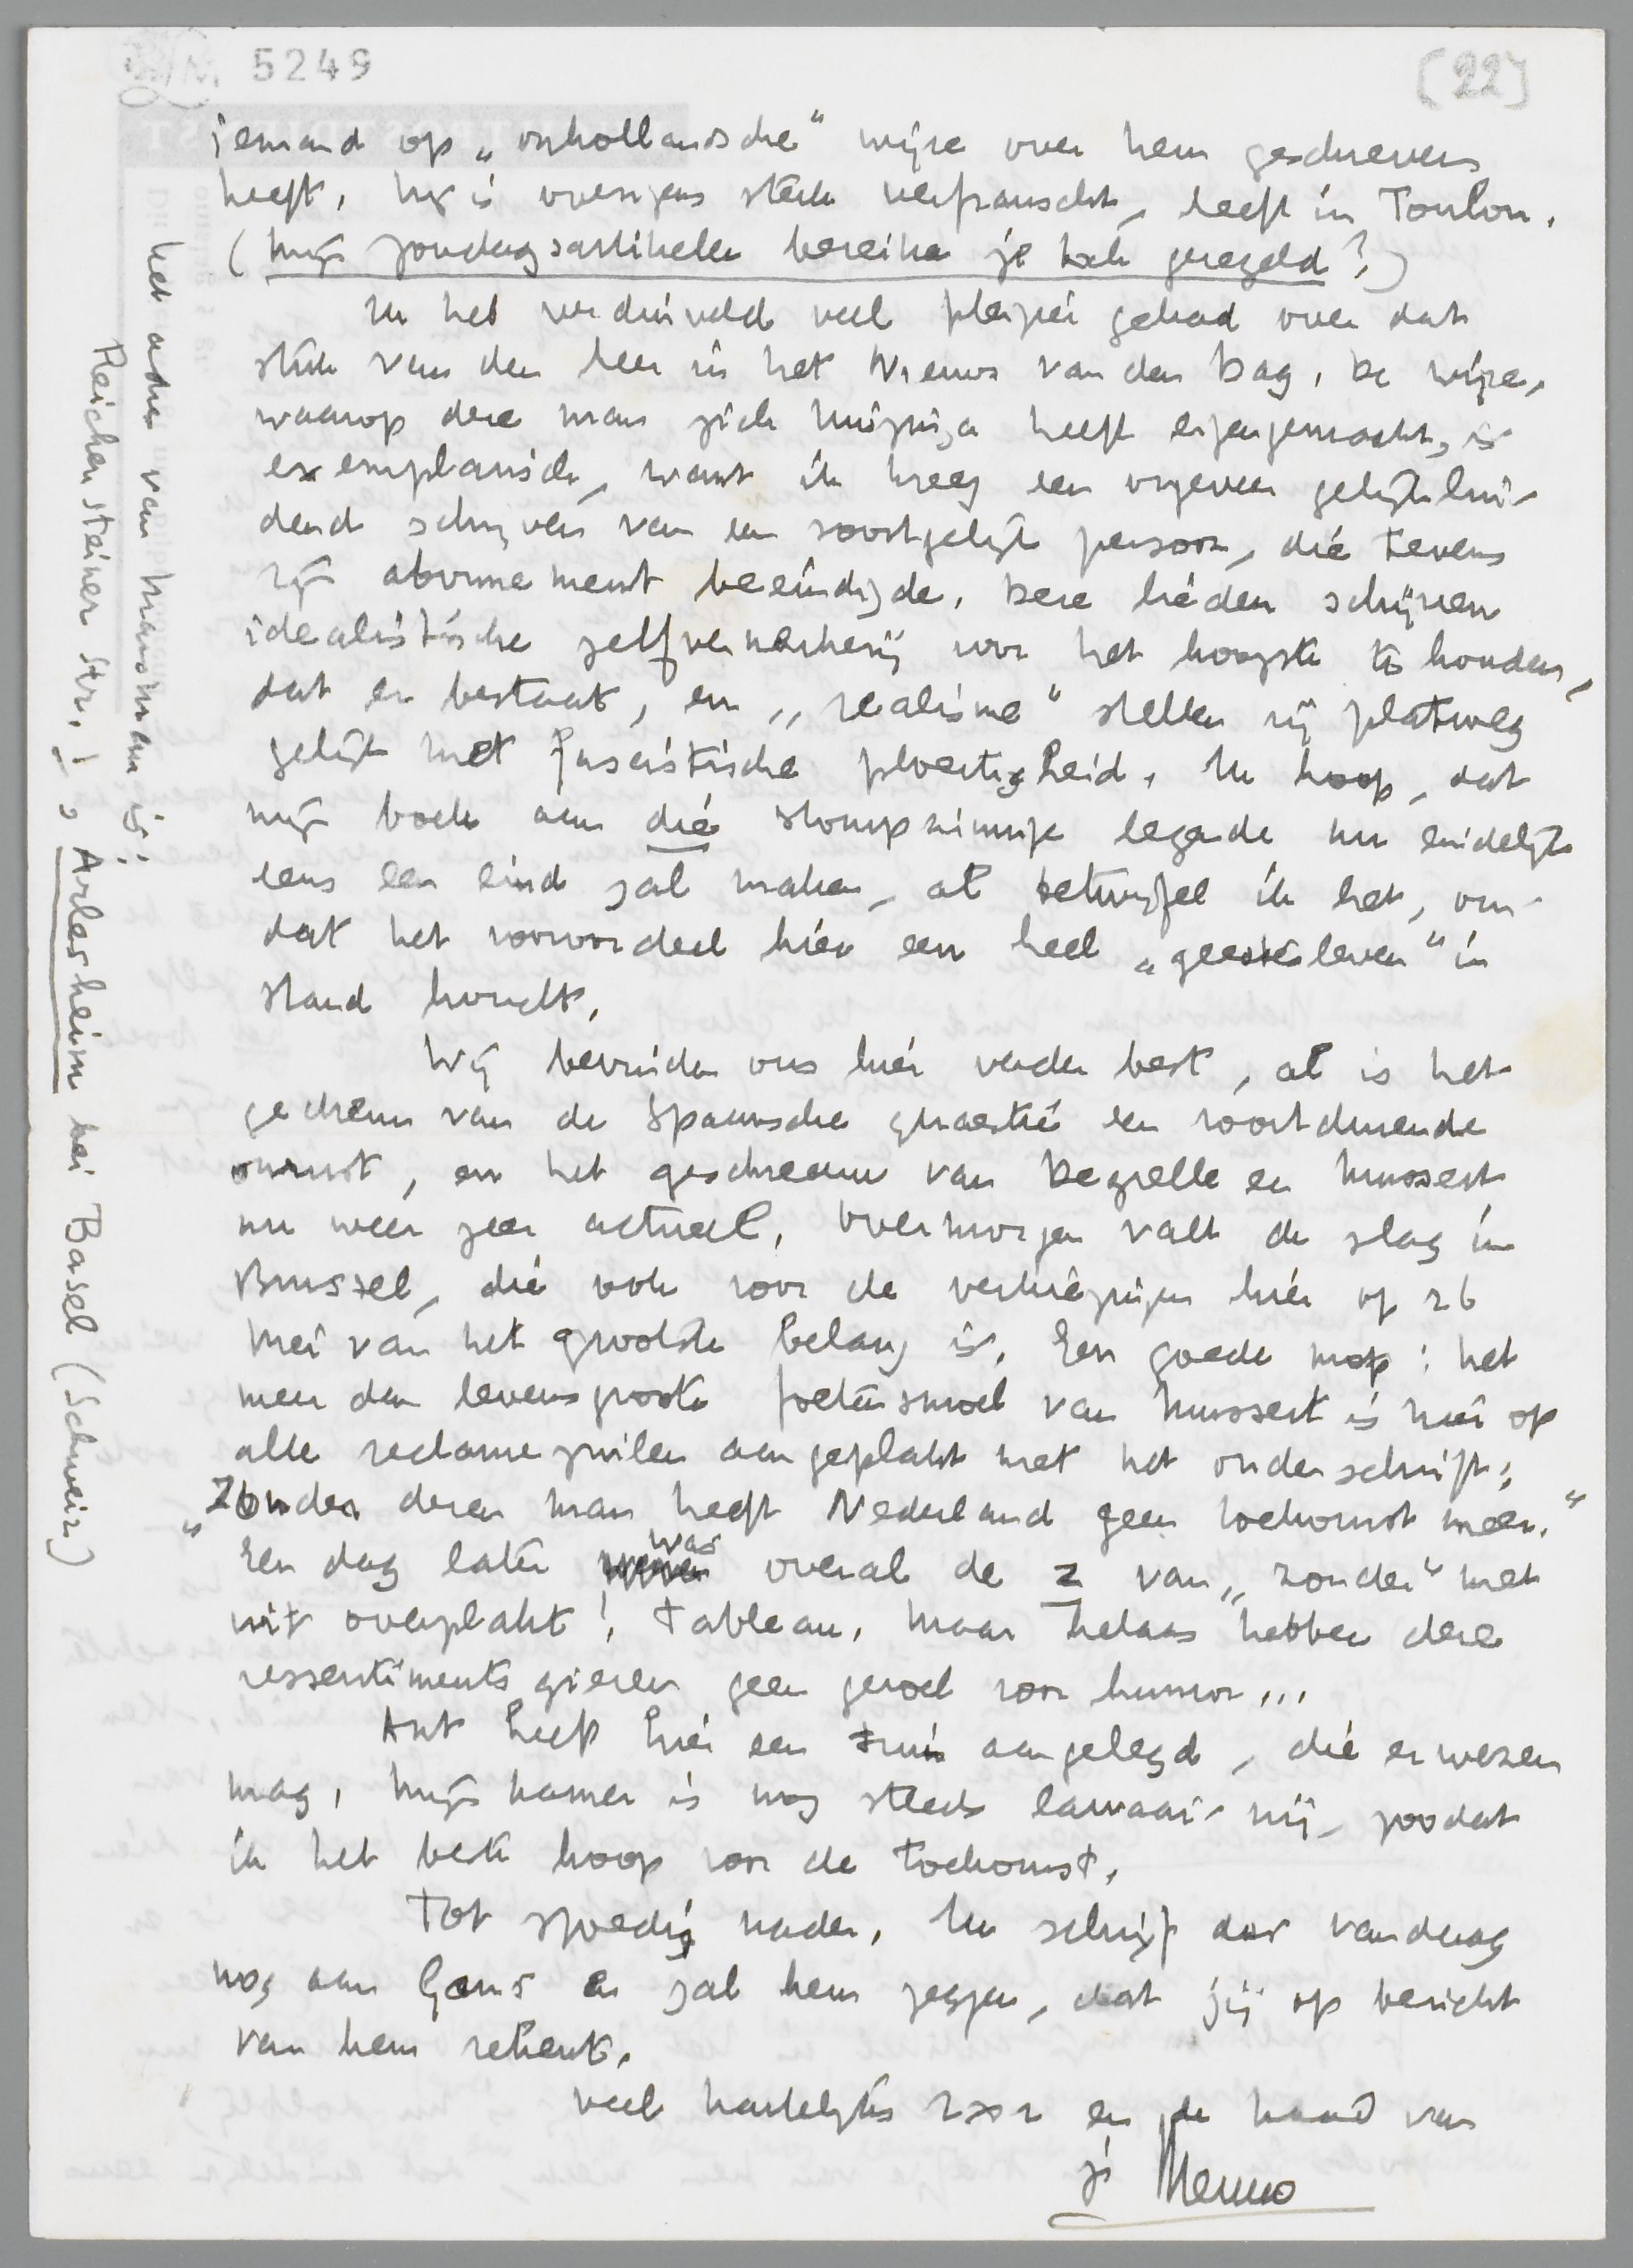 5249
(22)
iemand op „onhollandsche" wijze over hem geschreven
heeft. Hij is overigens sterk verfranscht, leeft in Toulon.
(Mijn zondagsartikelen bereiken je toch geregeld?)
Ik heb verduiveld veel plezier gehad over dat
stuk van den heer in het Nieuws van den Dag. De wijze,
waarop deze man zich Huizinga heeft eigengemaakt, is
exemplarisch, want ik kreeg een ongeveer gelijklui-
dend schrijven van een soortgelijk persoon, die tevens
zijn abonnement beëindigde. Deze lieden schijnen
idealistische zelfverneukerij voor het hoogste te houden,
dat er bestaat, en „realisme" stellen zij platweg
gelijk met fascistische ploertigheid. Ik hoop, dat
mijn boek aan die stompzinnige legende nu eindelijk
eens een eind zal maken, al betwijfel ik het, om-
dat het vooroordeel hier een heel „geestesleven" in
stand houdt.
Wij bevinden ons hier verder best, al is het
gedreun van de Spaansche quaestie een voortdurende
onrust, en het geschreeuw van Degrelle en Mussert
nu weer zeer actueel. Overmorgen valt de slag in
Brussel, die ook voor de verkiezingen hier op 26
Mei van het grootste belang is. Een goede mop: het
meer dan levensgroote foetusmoel van Mussert is hier op
alle reclamezuilen aangeplakt met het onderschrift:
„Zonder dezen man heeft Nederland geen toekomst meer."
Een dag later was overal de z van „zonder" met
wit overplakt! Tableau. Maar helaas hebben deze
ressentimentsgieren geen gevoel voor humor...
Ant heeft hier een tuin aangelegd, die er wezen
mag. Mijn kamer is nog steeds lawaai-vrij, zoodat
ik het beste hoop voor de toekomst.
Tot spoedig nader. Ik schrijf dus vandaag
nog aan Gans en zal hem zeggen, dat jij op bericht
van hem rekent.
Veel hartelijks 2 x 2 en de hand van
je Menno
Het adres van Marsman is:
Reichensteiner Str. 1, Arlesheim bei Basel (Schweiz)